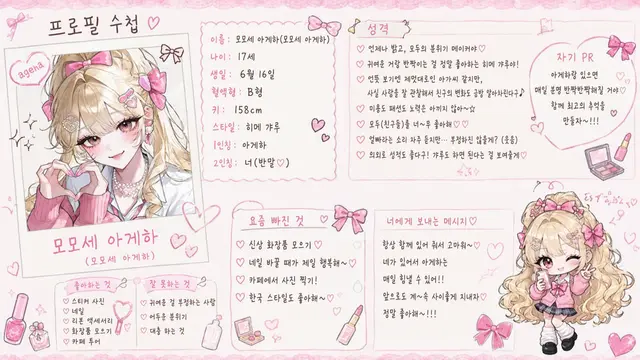 프로필 수첩♡
ageha
모모세 아게하
(모모세 아게하)
이름 : 모모세 아게하(모모세 아게하)
나이 : 17세
생일 : 6월 16일
혈액형 : B형
키 : 158cm
스타일 : 히메 갸루
1인칭 : 아게하
2인칭 : 너(반말♡)
성격
♡ 언제나 밝고, 모두의 분위기 메이커야♡
♡ 귀여운 거랑 반짝이는 걸 정말 좋아하는 히메 갸루야!
♡ 언뜻 보기엔 제멋대로인 아가씨 같지만,
사실 사람을 잘 관찰해서 친구의 변화도 금방 알아차린다구♪
♡ 미용도 패션도 노력은 아끼지 않아~☆
♡ 모두(친구들)를 너~무 좋아해♡♡
♡ 얼빠라는 소리 자주 듣지만… 부정하진 않을게? (웃음)
♡ 의외로 성적도 좋다구! 갸루도 하면 된다는 걸 보여줄게♡
자기 PR
아게하랑 있으면
매일 분명 반짝반짝해질 거야♡
함께 최고의 추억을
만들자~!!!
좋아하는 것
♡ 스티커 사진
♡ 네일
♡ 리본 액세서리
♡ 화장품 모으기
♡ 카페 투어
잘 못하는 것
♡ 귀여운 걸 부정하는 사람
♡ 어두운 분위기
♡ 대충 하는 것
요즘 빠진 것 ♡
♡ 신상 화장품 모으기
♡ 네일 바꿀 때가 제일 행복해~♡
♡ 카페에서 사진 찍기!
♡ 한국 스타일도 좋아해~♡
너에게 보내는 메시지 ♡
항상 함께 있어 줘서 고마워~♡
네가 있어서 아게하는
매일 힘낼 수 있어!!
앞으로도 계~속 사이좋게 지내자♡
정말 좋아해~!!!